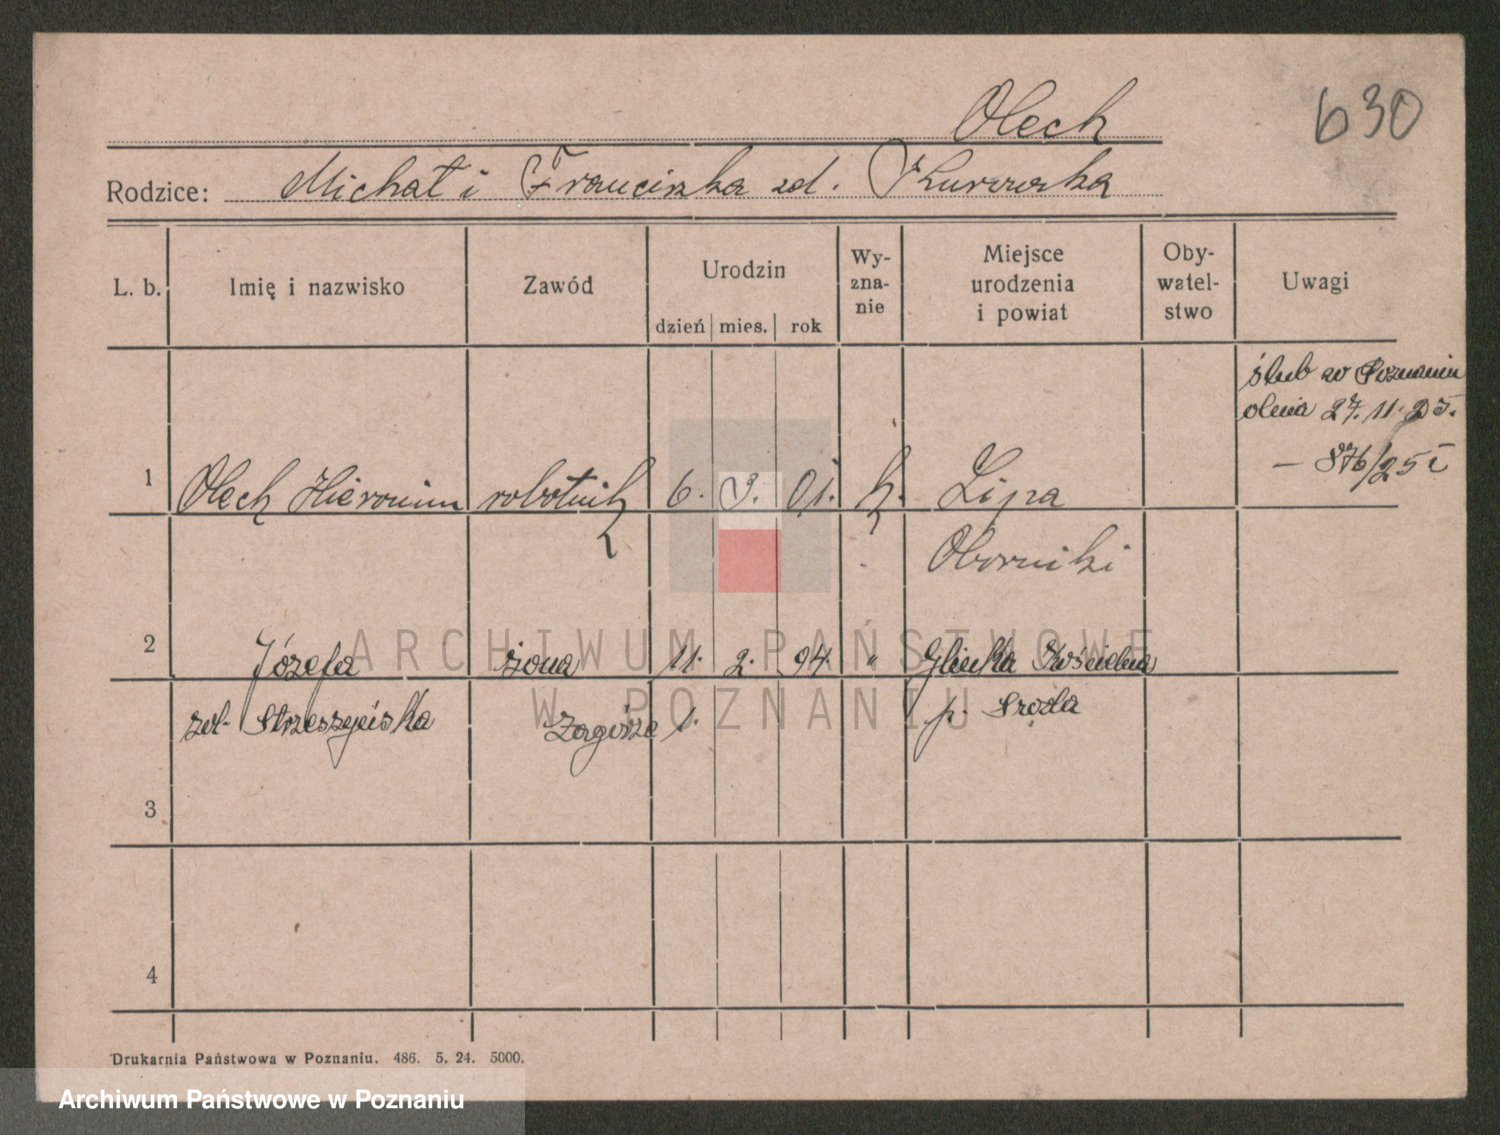 Olech
630
Rodzice: Michał i Franciszka zd. Kurowska
L. b. Imię i nazwisko Zawód Urodzin dzień mies. rok Wy-zna-nie Miejsce urodzenia i powiat Oby-watel-stwo Uwagi
ślub w Poznaniu
dnia 27. 11. 25.
— 876/25 I
1 Olech Hieronim robotnik 6. 9. 01. k. Lipa
Oborniki
2 Józefa żona 11. 2. 94. " Kościelna
zd. Zagórze 1. p. Środa
3
4
ARCHIWUM PAŃSTWOWE
W POZNANIU
Drukarnia Państwowa w Poznaniu. 486. 5. 24. 5000.
Archiwum Państwowe w Poznaniu